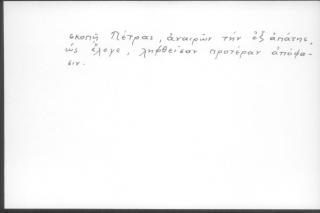 σκοπῆ Πέτρας, ἀναιρῶν τήν ἐξ ἀπάτης,
ὡς ἔλεγε, ληφθεῖσαν προτέραν ἀπόφα-
σιν.